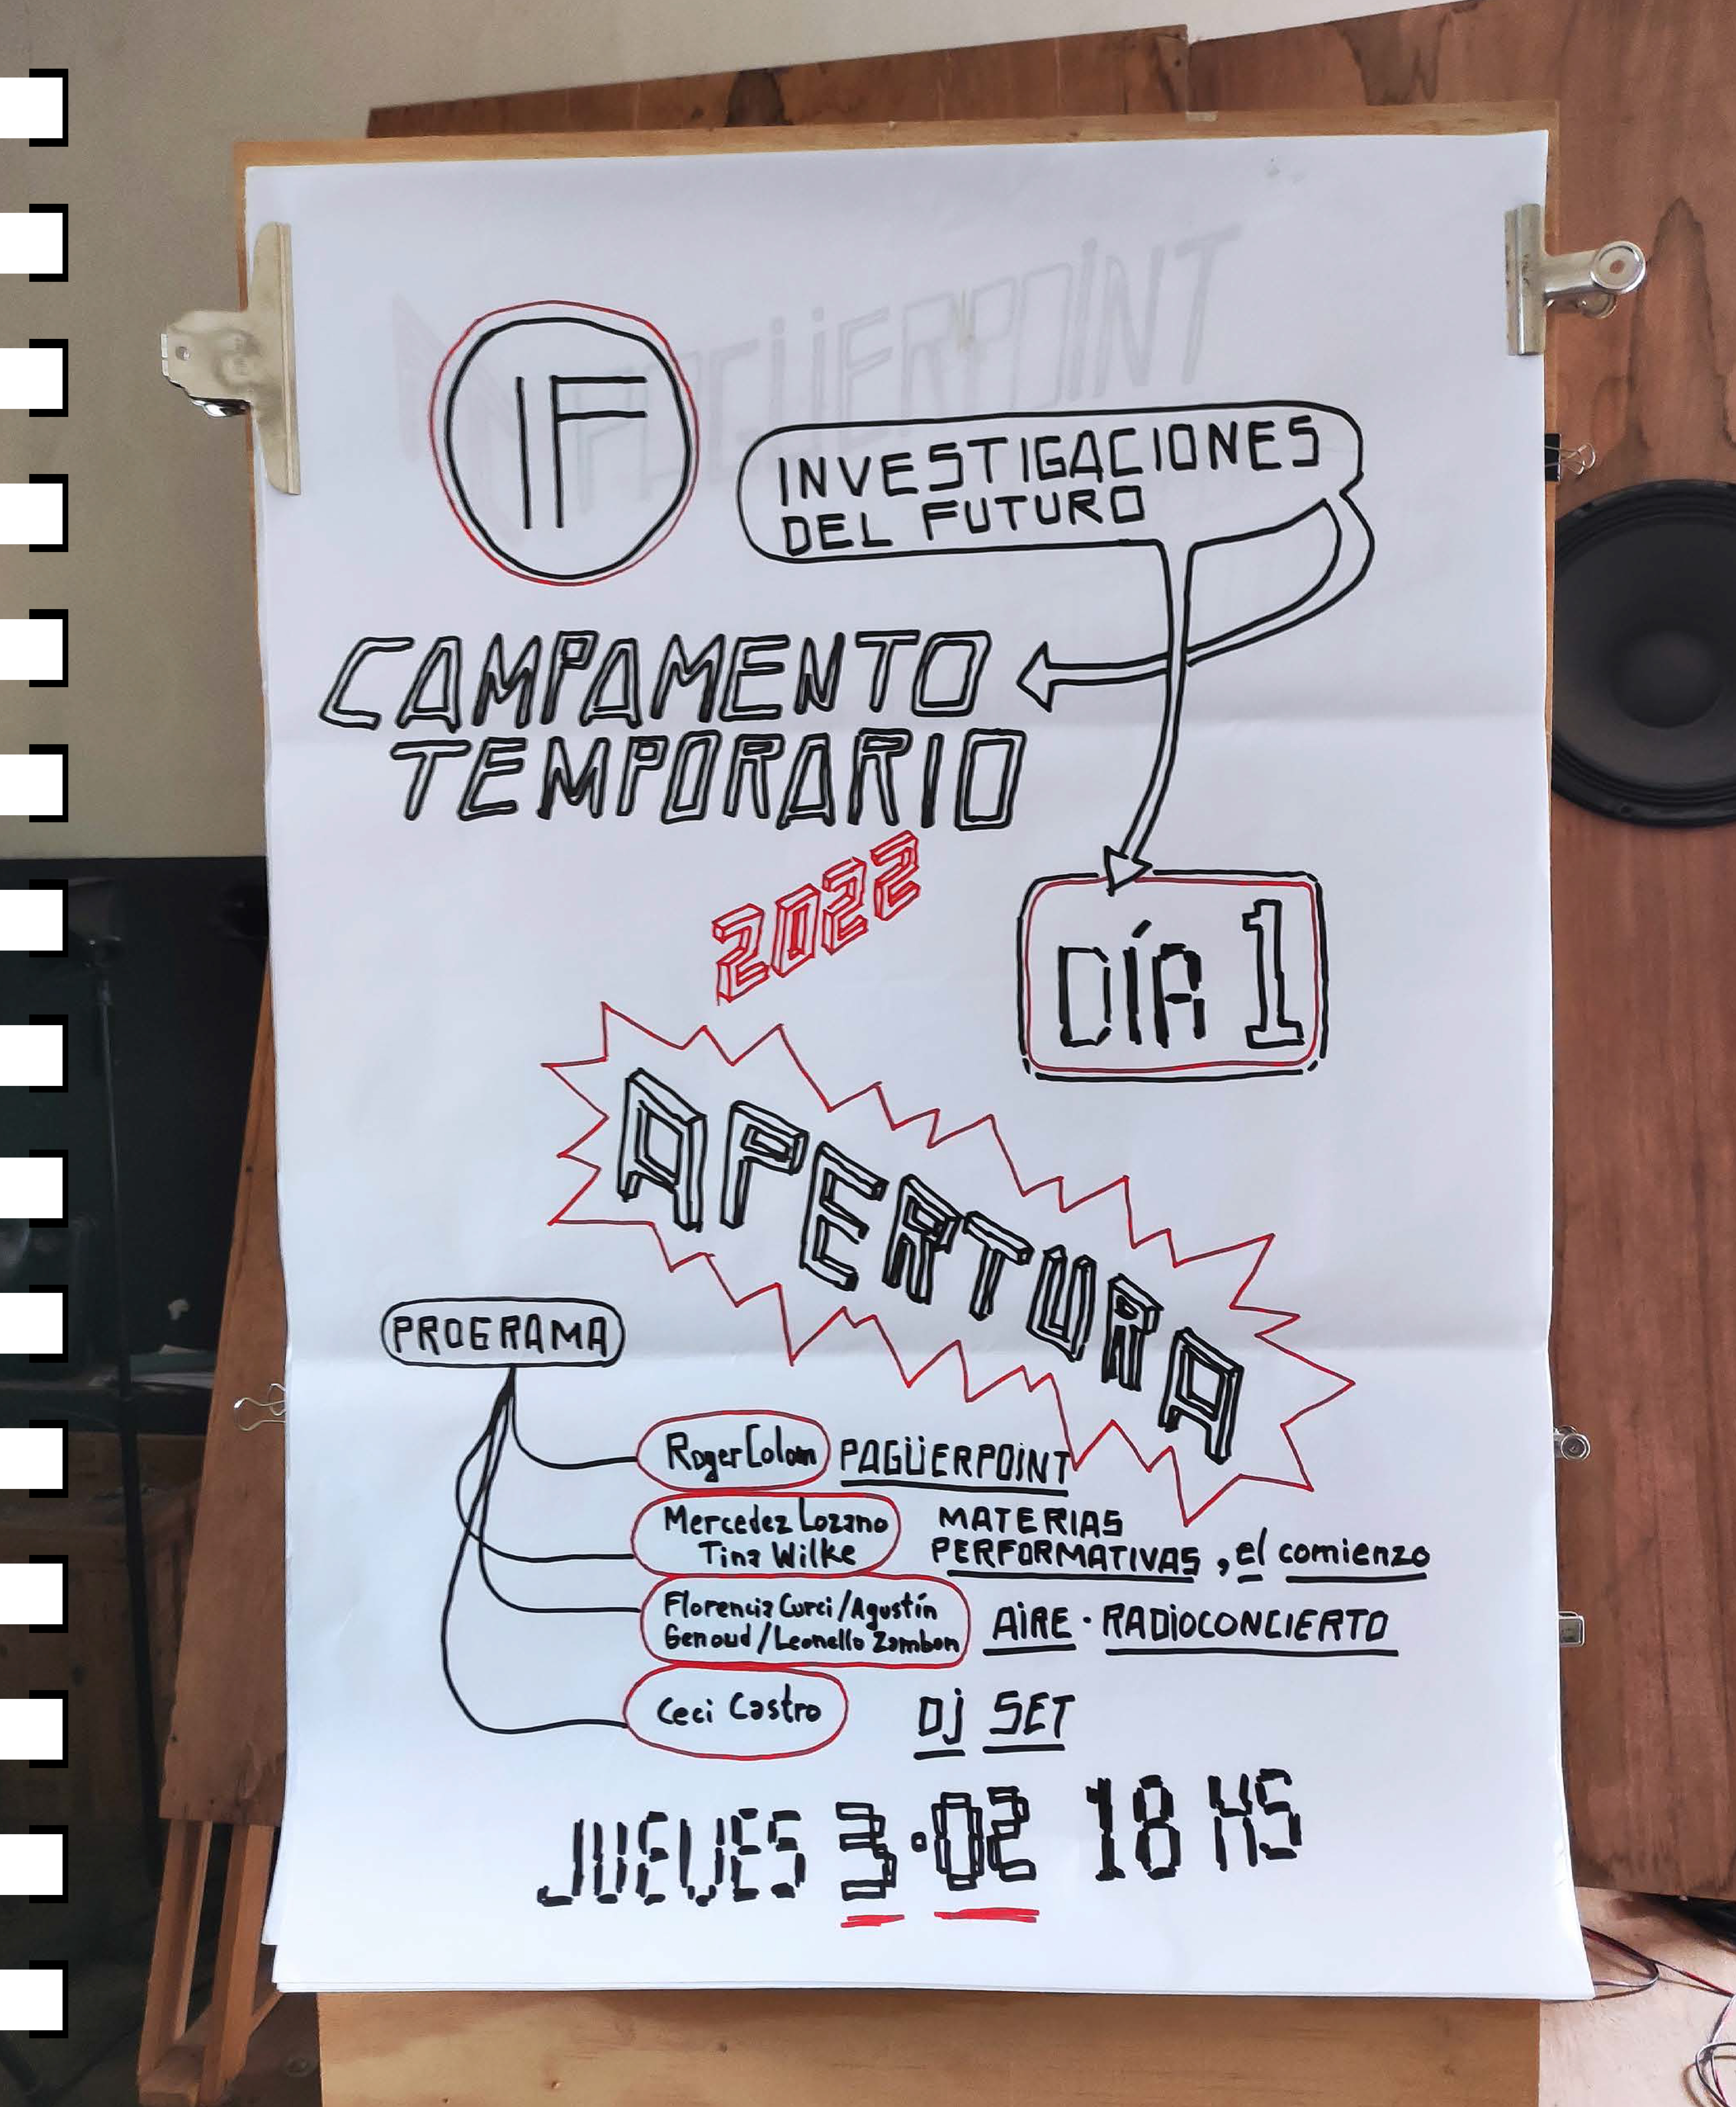 PAGÜERPOINT
IF
INVESTIGACIONES
DEL FUTURO
CAMPAMENTO
TEMPORARIO
2022
DÍA 1
APERTURA
PROGRAMA
Roger Colom PAGÜERPOINT
Mercedez Lozano
Tina Wilke
MATERIAS
PERFORMATIVAS, el comienzo
Florencia Curci / Agustín
Genoud / Leonello Zambon
AIRE · RADIOCONCIERTO
Ceci Castro DJ SET
JUEVES 3·02 18 HS